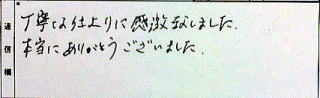 通信欄
丁寧な仕上りに感激致しました.
本当にありがとうございました.